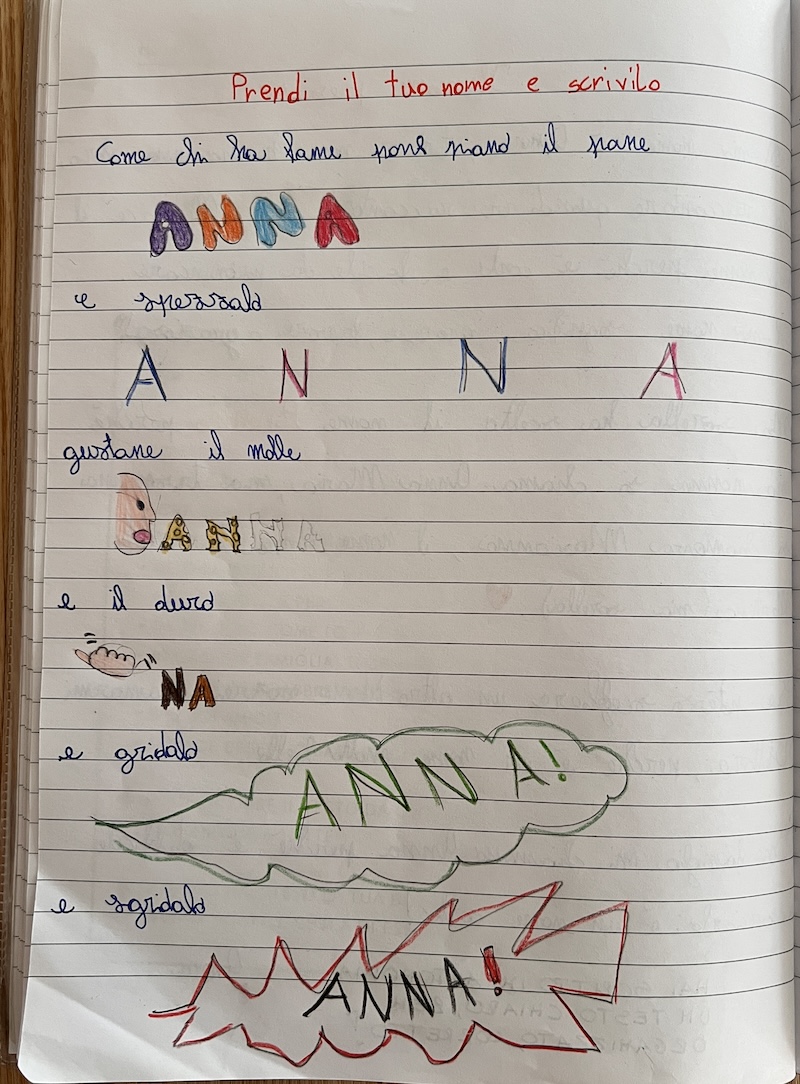 Prendi il tuo nome e scrivilo
Come chi ha fame pone piano il pane
ANNA
e spezzalo
A N N A
gustane il molle
ANNA
e il duro
NA
e gridalo
ANNA!
e sgridalo
ANNA!